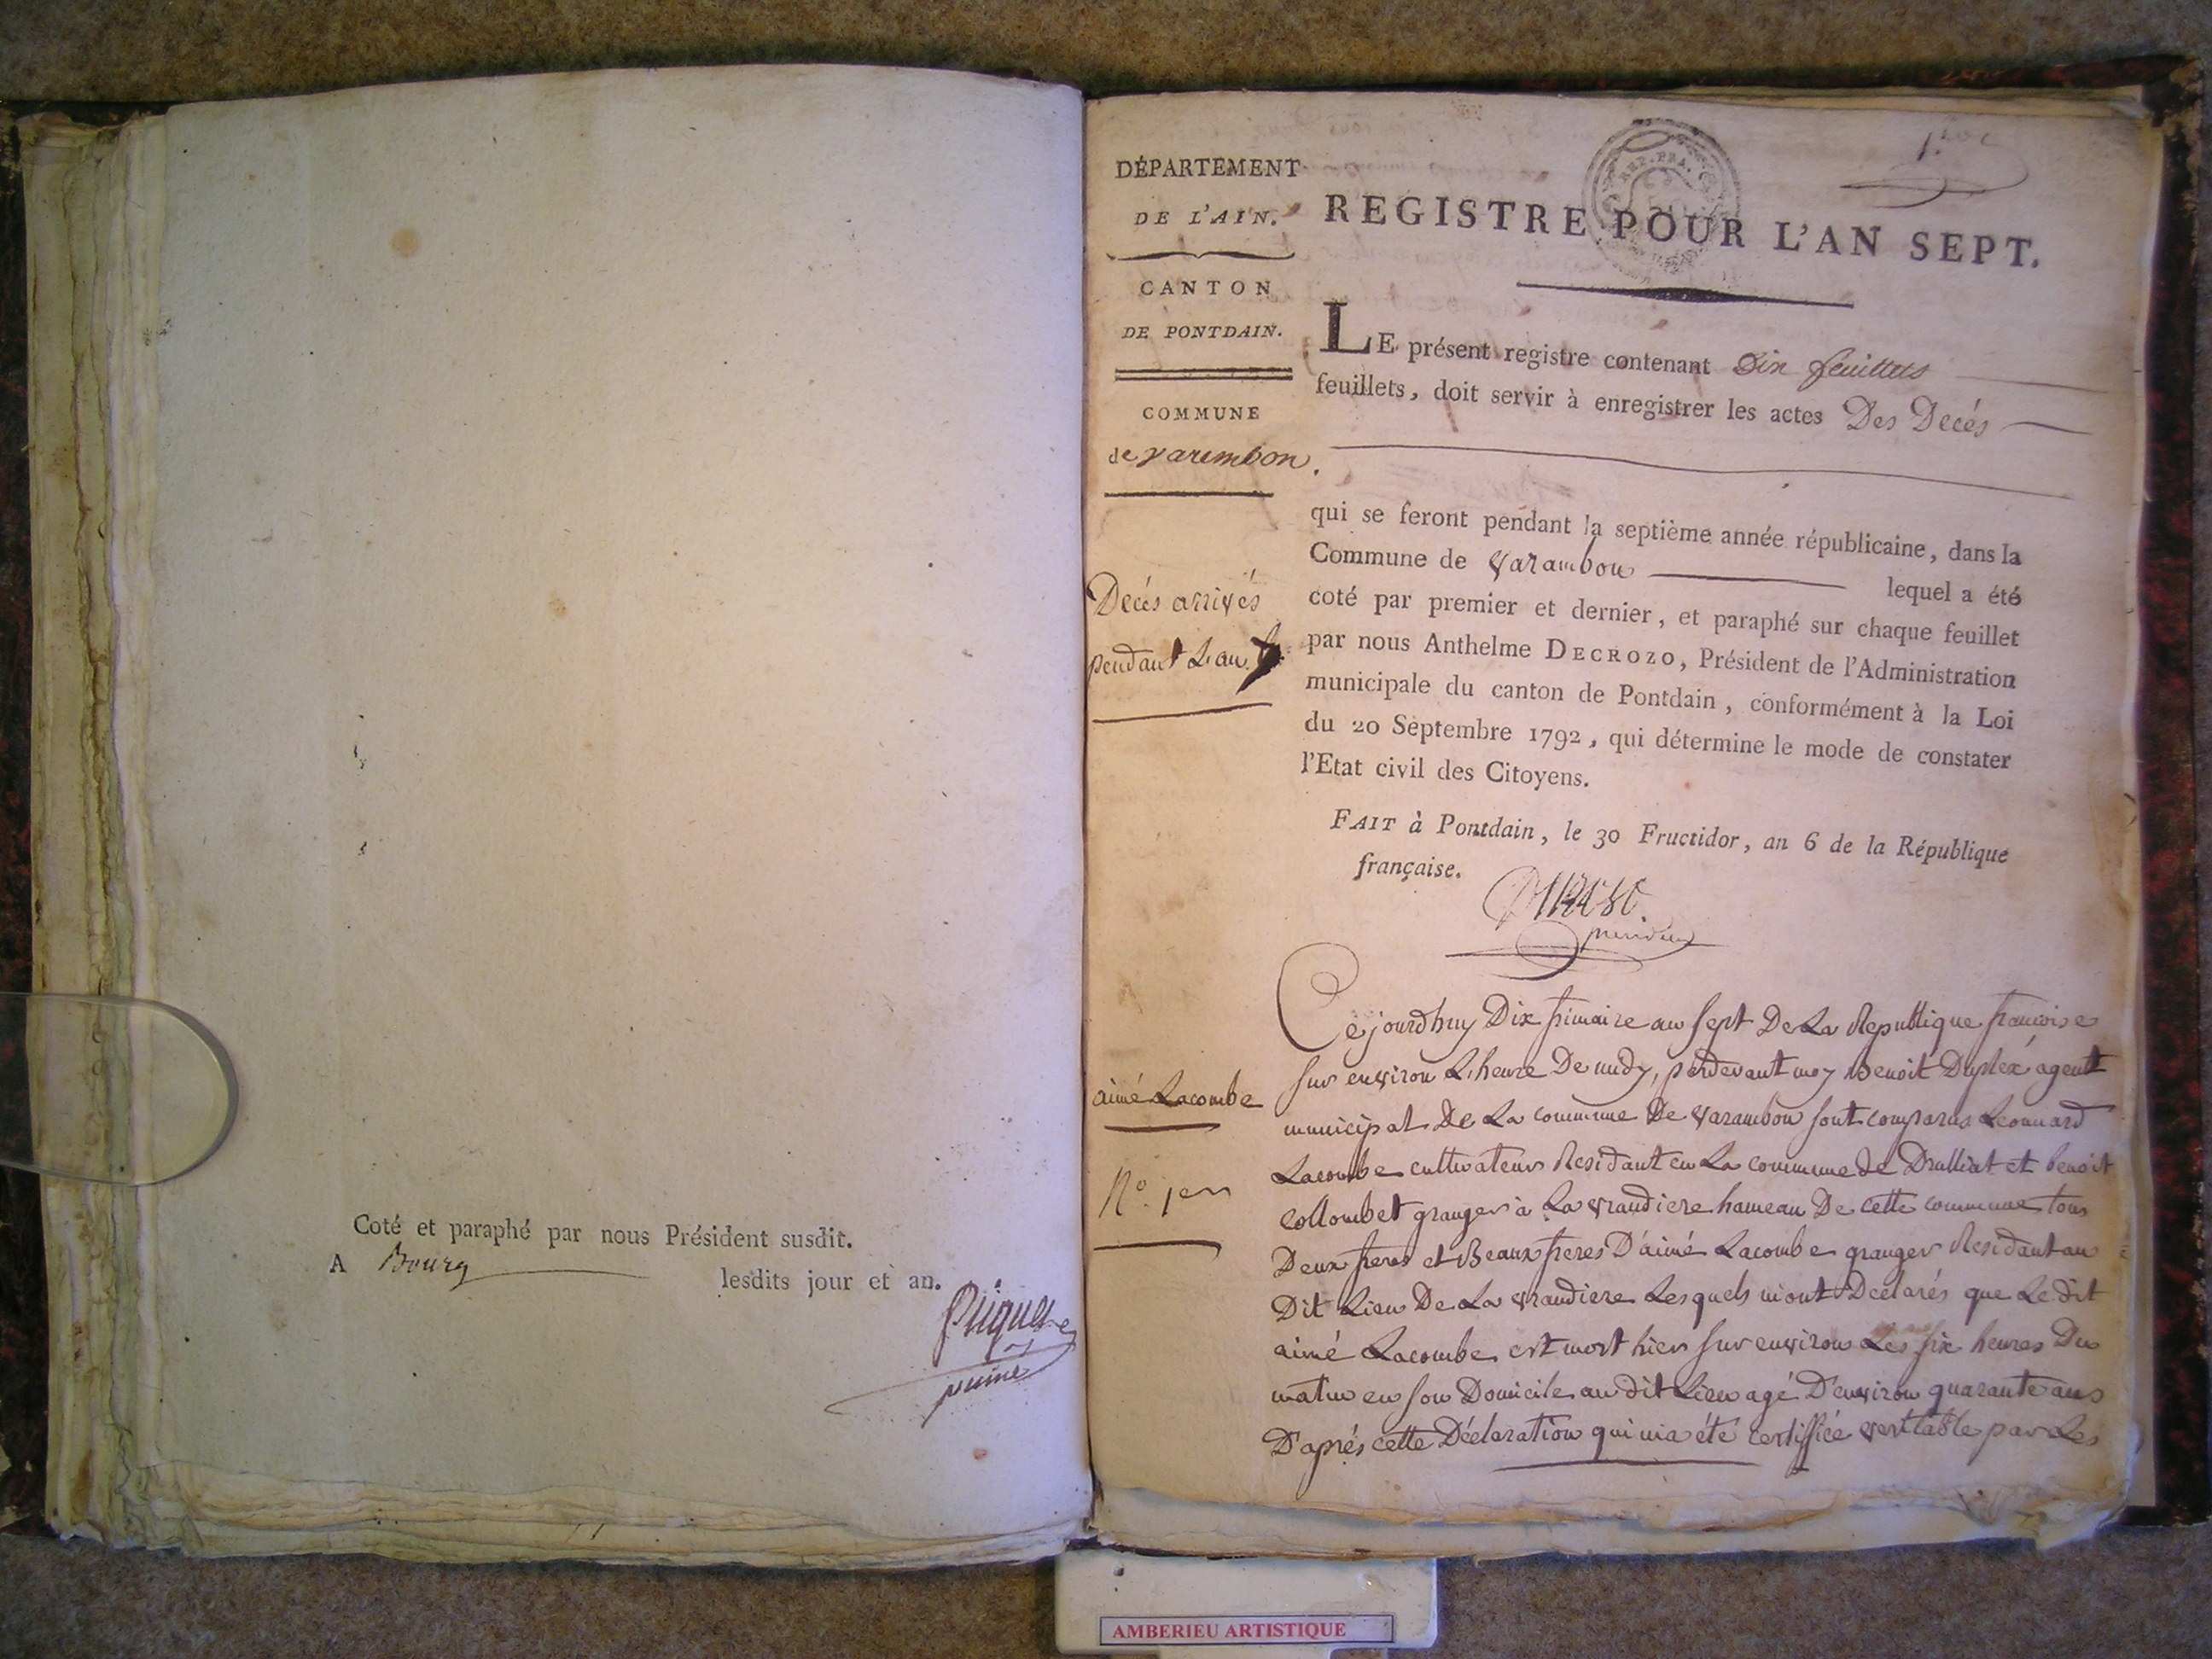 Coté et paraphé par nous Président susdit.
A Bourg lesdits jour et an.
DÉPARTEMENT
DE L'AIN.
CANTON
DE PONTDAIN.
COMMUNE
de varembon.
Decés arrivés
pendant L'an 7
aimé Lacombe
N.o 1er
REP. FRA.
REGISTRE POUR L'AN SEPT.
LE présent registre contenant Dix feuillets
feuillets, doit servir à enregistrer les actes Des Decés
qui se feront pendant la septième année républicaine, dans la
Commune de Varambon lequel a été
coté par premier et dernier, et paraphé sur chaque feuillet
par nous Anthelme DECROZO, Président de l'Administration
municipale du canton de Pontdain, conformément à la Loi
du 20 Septembre 1792, qui détermine le mode de constater
l'Etat civil des Citoyens.
FAIT à Pontdain, le 30 Fructidor, an 6 de la République
française.
Cejourdhuy Dix frimaire an sept De La Republique francoise
sur environ L'heure De midy, pardevant moy Benoit Duplex agent
municipal De La commune De Varambon sont comparus Leonnard
Lacombe cultivateur Residant en La commune de Drulliat et benoit
Collombet granger à La Vraudiere hameau De cette commune tous
Deux freres et Beaux freres D'aimé Lacombe granger Residant au
Dit Lieu De La Vraudiere Lesquels m'ont Declarés que Le dit
aimé Lacombe est mort hier sur environ Les six heures Du
matin en son Domicile au dit Lieu agé D'environ quarante ans
D'aprés cette Déclaration qui m'a été certiffiée veritable par Les
AMBERIEU ARTISTIQUE